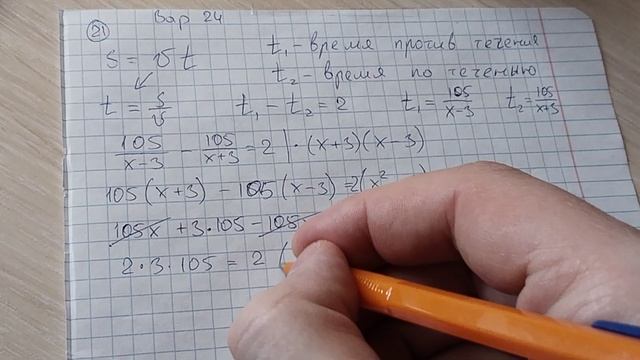 21 Вар 24
s = vt t₁ - время против течения
t₂ - время по теченью
t = s/v t₁ - t₂ = 2 t₁ = 105/(x-3) t₂ = 105/(x+3)
105/(x-3) - 105/(x+3) = 2 | · (x+3)(x-3)
105(x+3) - 105(x-3) = 2(x²
105x + 3·105 - 105
2·3·105 = 2 (